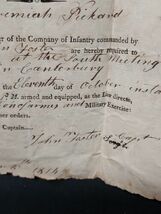 remiah Pickard
er of the Company of Infantry commanded by
n Foster are hereby required to
at the South Meeting
n Canterbury
the Eleventh day of October insta
P.M. armed and equipped, as the law directs,
Military Exercise:
ther orders.
Captain.
John Foster Capt
1814